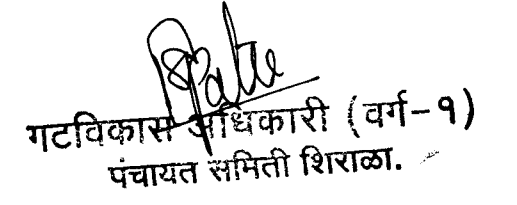 गटविकास अधिकारी (वर्ग-१)
पंचायत समिती शिराळा.